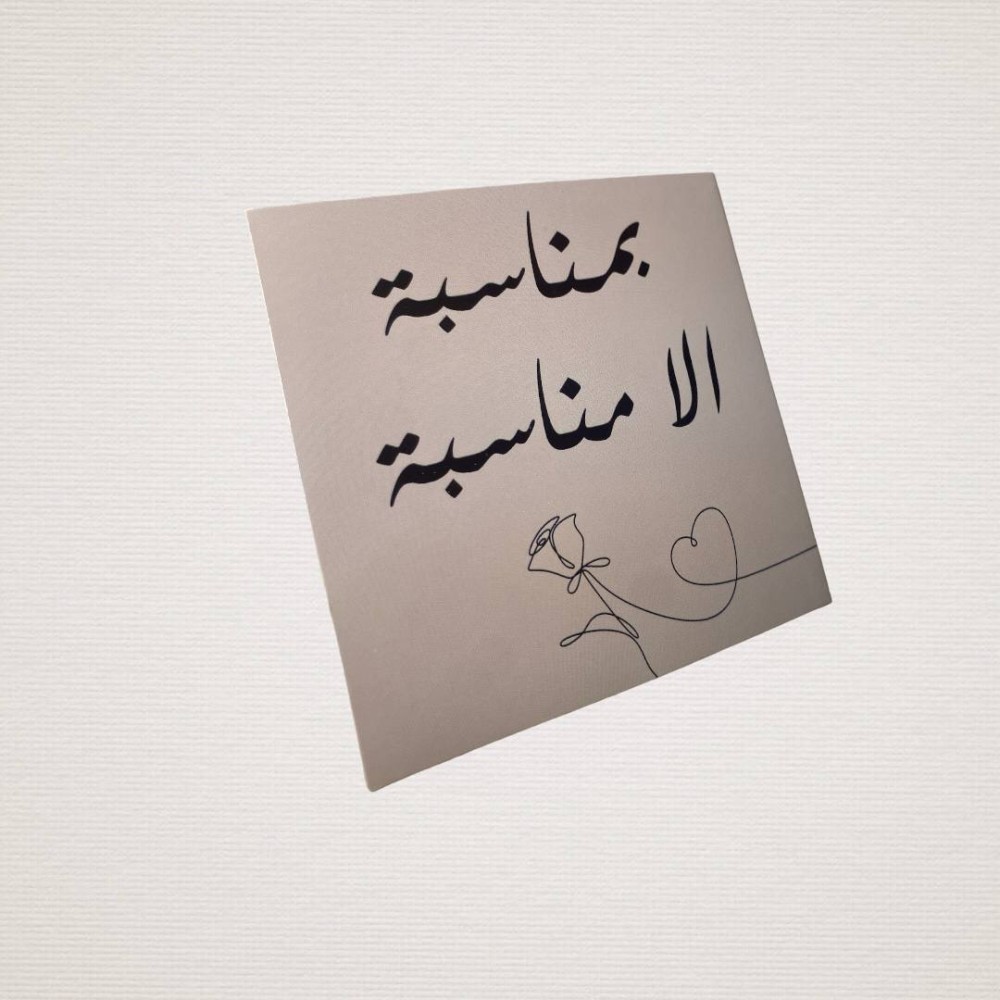 بمناسبة
الا مناسبة